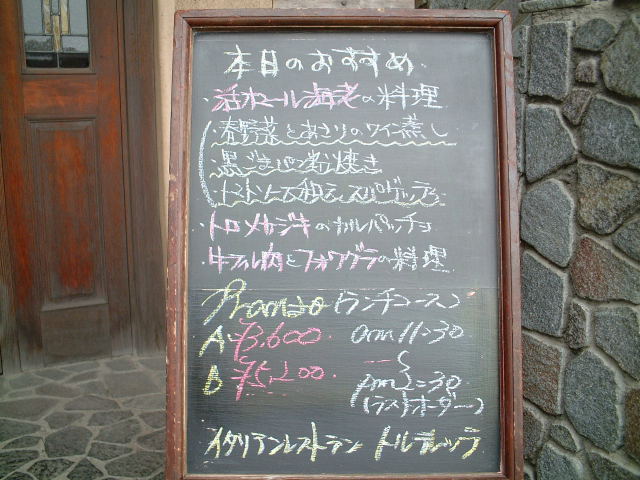 本日のおすすめ
・活オマール海老の料理
・春野菜とあさりのワイン蒸し
・黒ごまパン粉焼き
・トマトソース和え、スパゲッティ
・トロメカジキのカルパッチョ
・牛フィレ肉とフォワグラの料理
Pranzo (ランチコース)
A ¥3,600. am11:30
B ¥5,200. pm2:30
(ラストオーダー)
イタリアンレストラン トルナヴェッラ